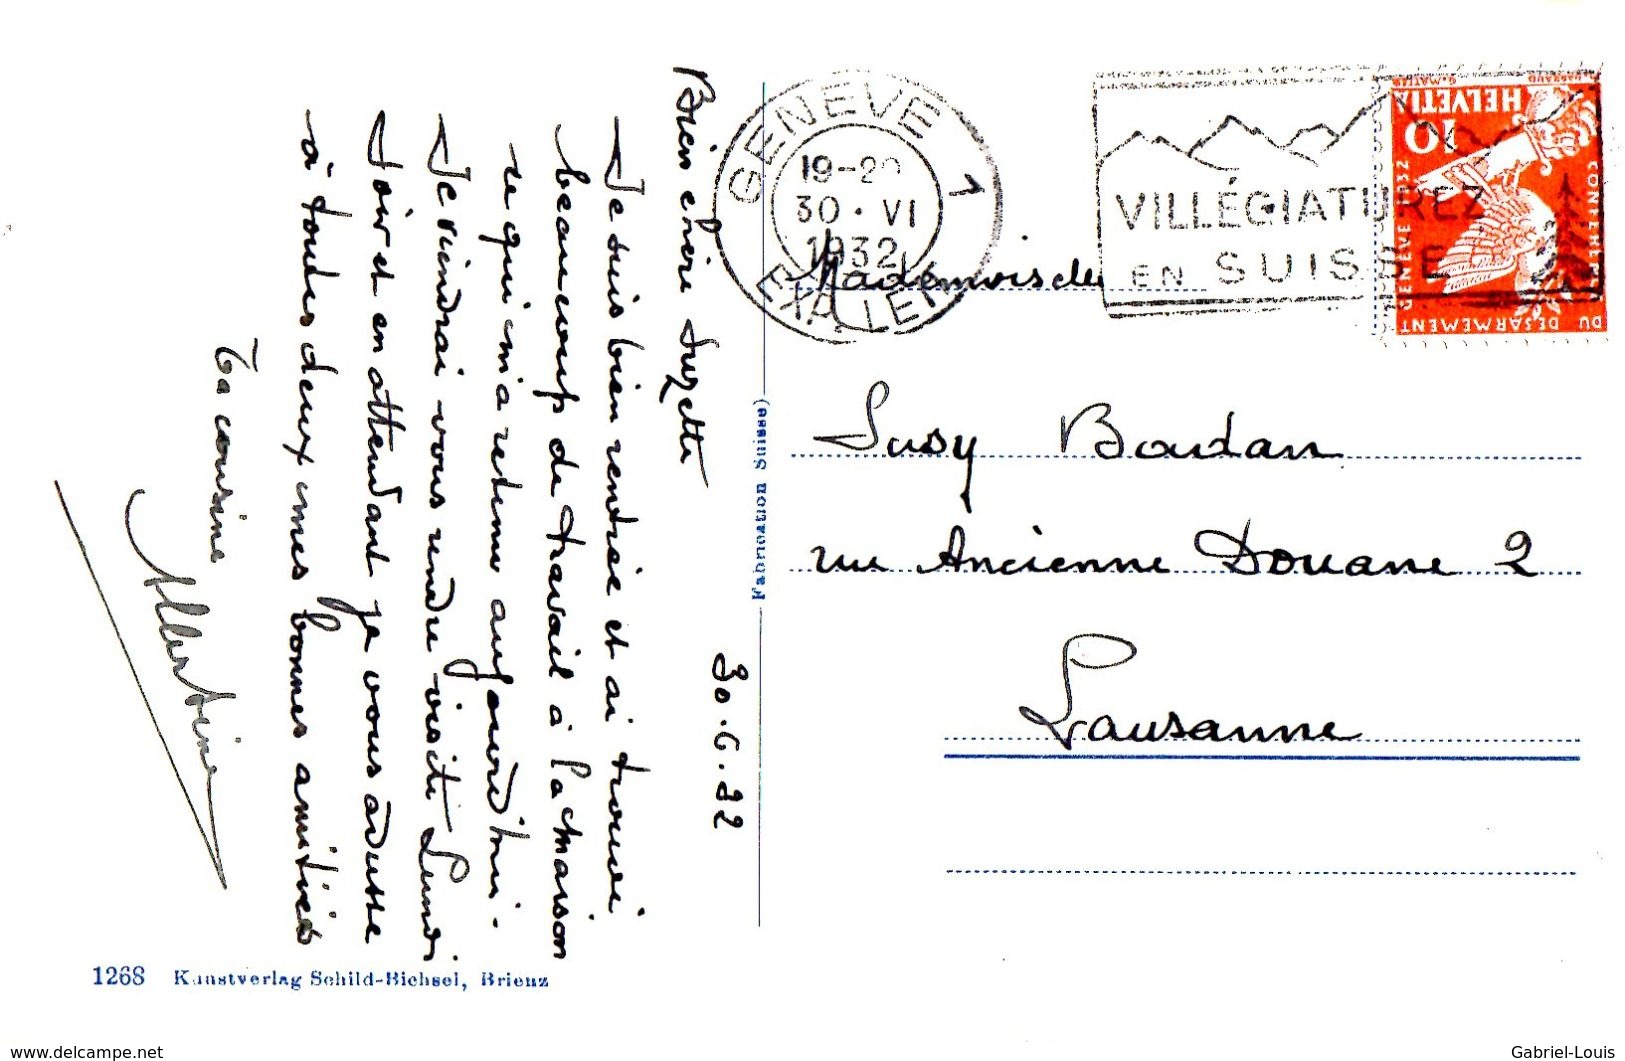 30.6.32
Bien chère Suzette
Je suis bien rentrée et ai trouvé
beaucoup de travail à la maison
ce qui m'a retenu aujourd'hui.
Je viendrai vous rendre visite Lundi
soir et en attendant je vous adresse
à toutes deux mes bonnes amitiés
Ta cousine
Albertine
1268 Kunstverlag Schild-Bichsel, Brienz
Fabrication Suisse)
GENÈVE 1
19-20
30. VI
1932
EXP. LET.
VILLÉGIATUREZ
EN SUISSE
HELVETIA
10
CONFERENCE
DU DESARMEMENT
GENEVE 1932
Mademoiselle
Susy Baudan
rue Ancienne Douane 2
Lausanne
www.delcampe.net
Gabriel-Louis